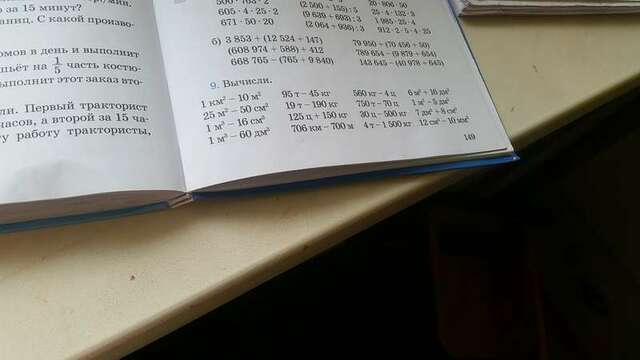 за 15 минут?
аниц. С какой произво-
омов в день и выполнит
шьёт на 1/5 часть костю-
ыполнит этот заказ вто-
ли. Первый тракторист
часов, а второй за 15 ча-
у работу трактористы,
605 · 4 · 25 · 2 (9 639 + 693) : 3 25 · 4 · 132 · 3
671 · 50 · 20 (2 064 + 936) : 3 1 985 · 25 · 4
912 · 2 · 5 · 4 · 25
б) 3 853 + (12 524 + 147) 79 950 + (70 456 + 50)
(608 974 + 588) + 412 789 654 − (9 879 + 654)
668 765 − (765 + 9 840) 143 645 − (40 978 + 645)
9. Вычисли.
1 км² − 10 м² 95 т − 45 кг 560 кг − 4 ц 6 м² + 16 дм²
25 м² − 50 см² 19 т − 190 кг 750 т − 70 ц 1 м³ − 5 дм³
1 м³ − 16 см³ 125 ц + 150 кг 30 ц − 500 кг 7 дм³ + 8 см³
1 м³ − 60 дм³ 706 км − 700 м 4 т − 1 500 кг 12 см³ − 10 мм³
149